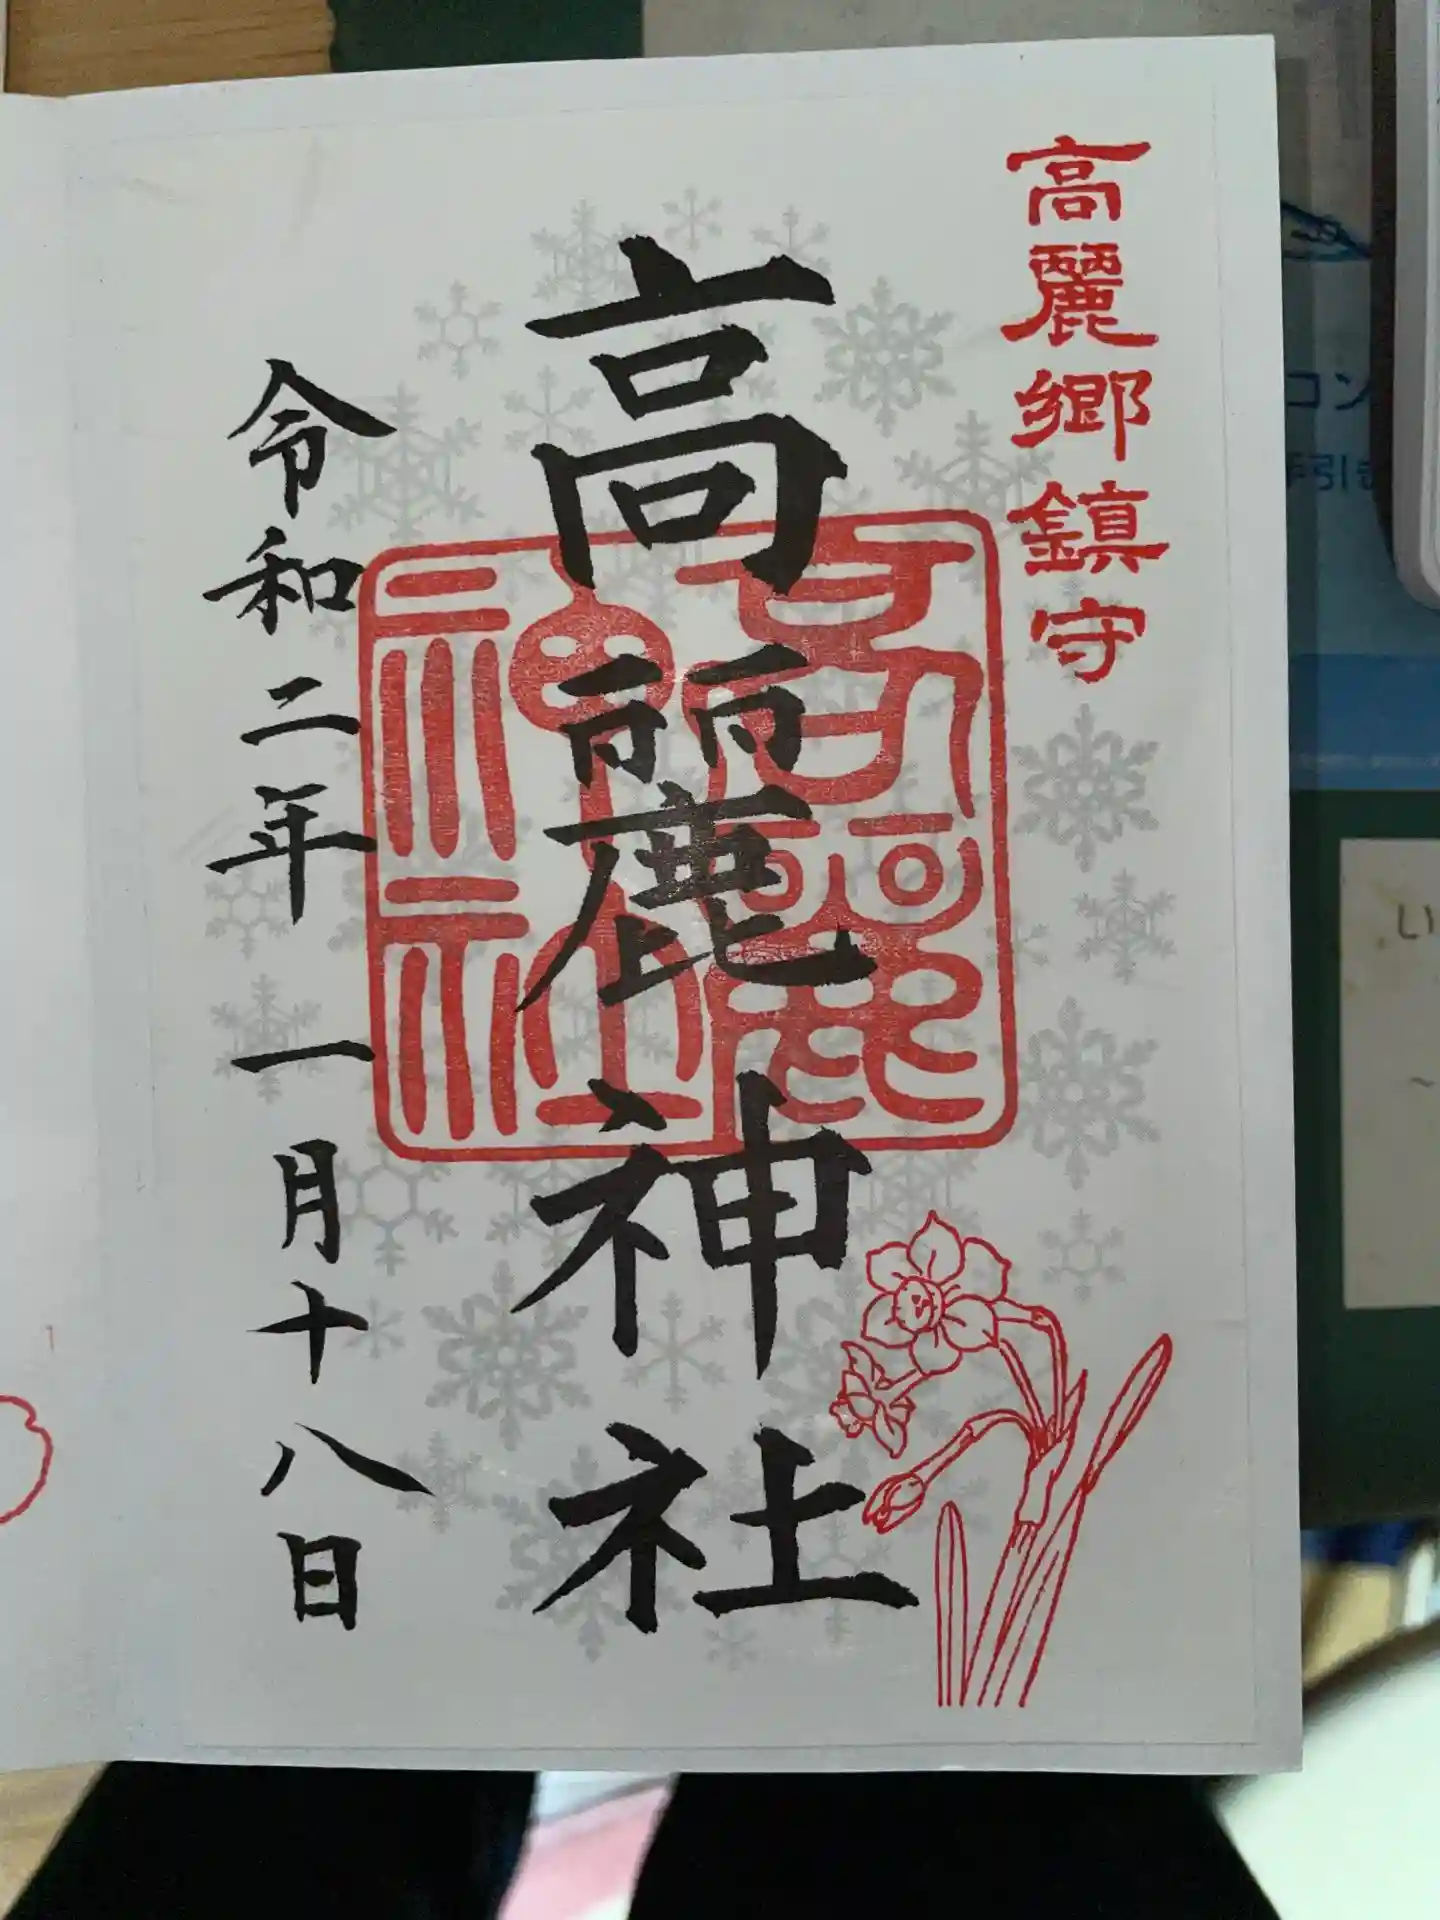 高麗郷鎮守
高麗神社
令和二年一月十八日
高麗
神社
コン
手引き
い